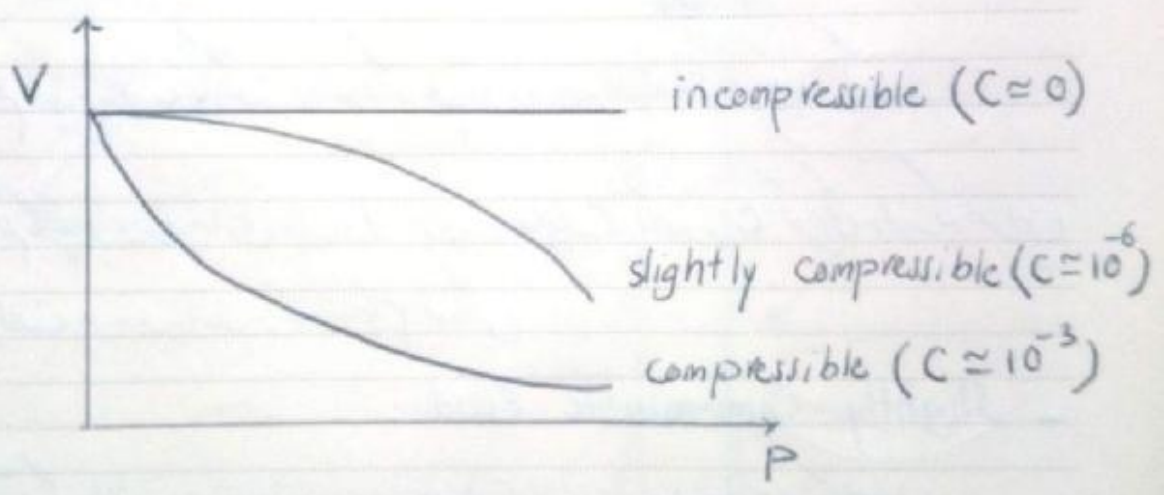 V
incompressible (C ≃ 0)
slightly compressible (C ≃ 10⁻⁶)
compressible (C ≃ 10⁻³)
P